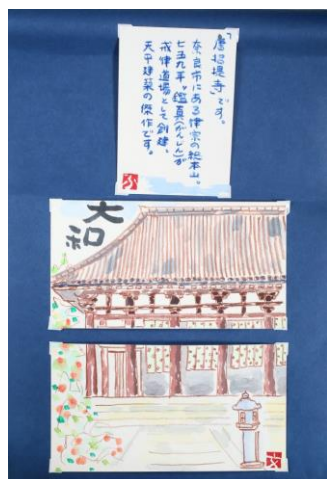 「唐招提寺」です。
奈良市にある律宗の総本山。
七五九年。鑑真(がんじん)が
戒律道場として創建、
天平建築の傑作です。
ふ
大和